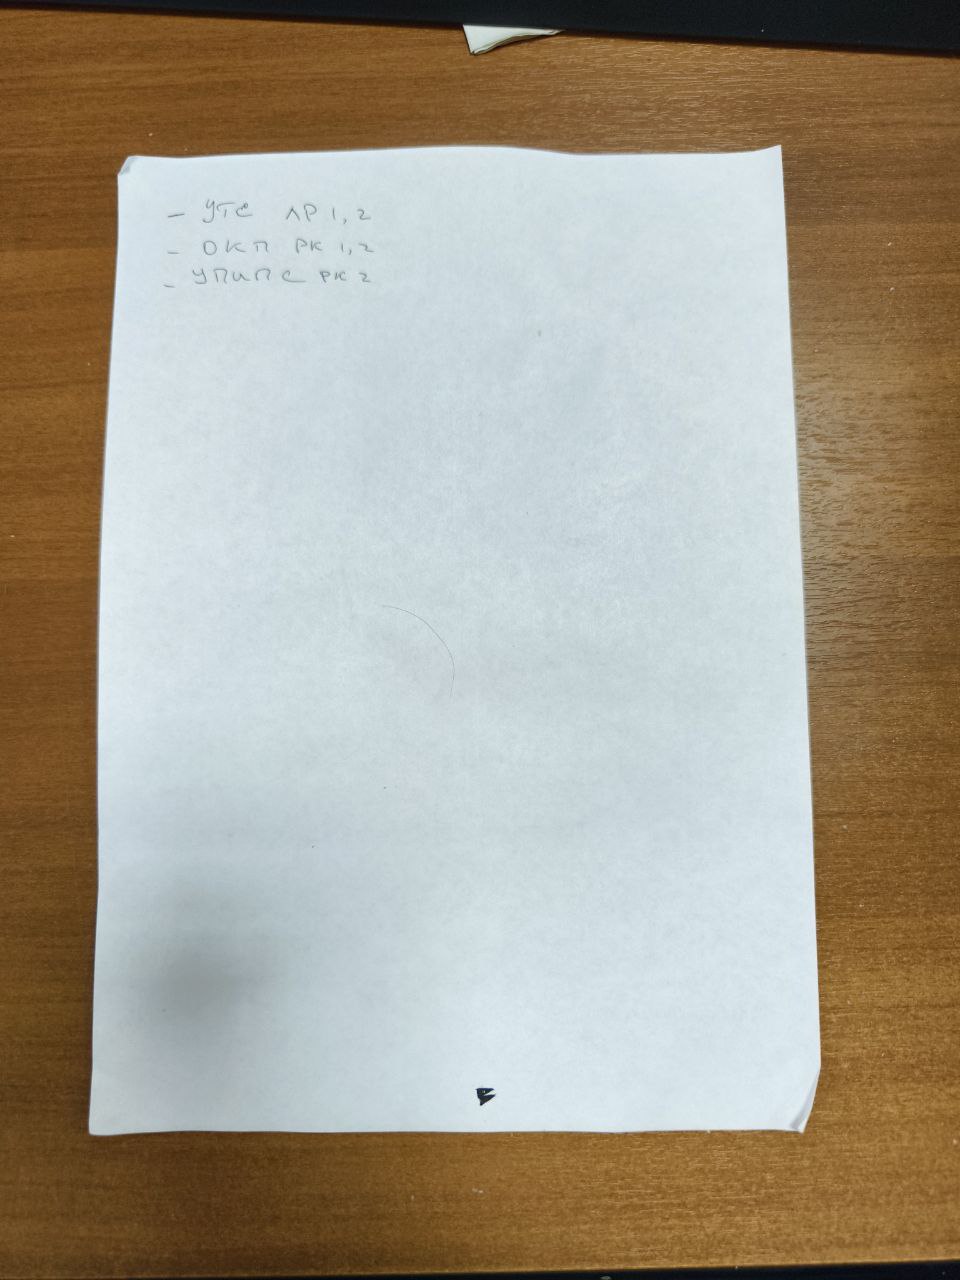 - УТС ЛР 1,2
- ОКП РК 1,2
- УПИПС РК 2